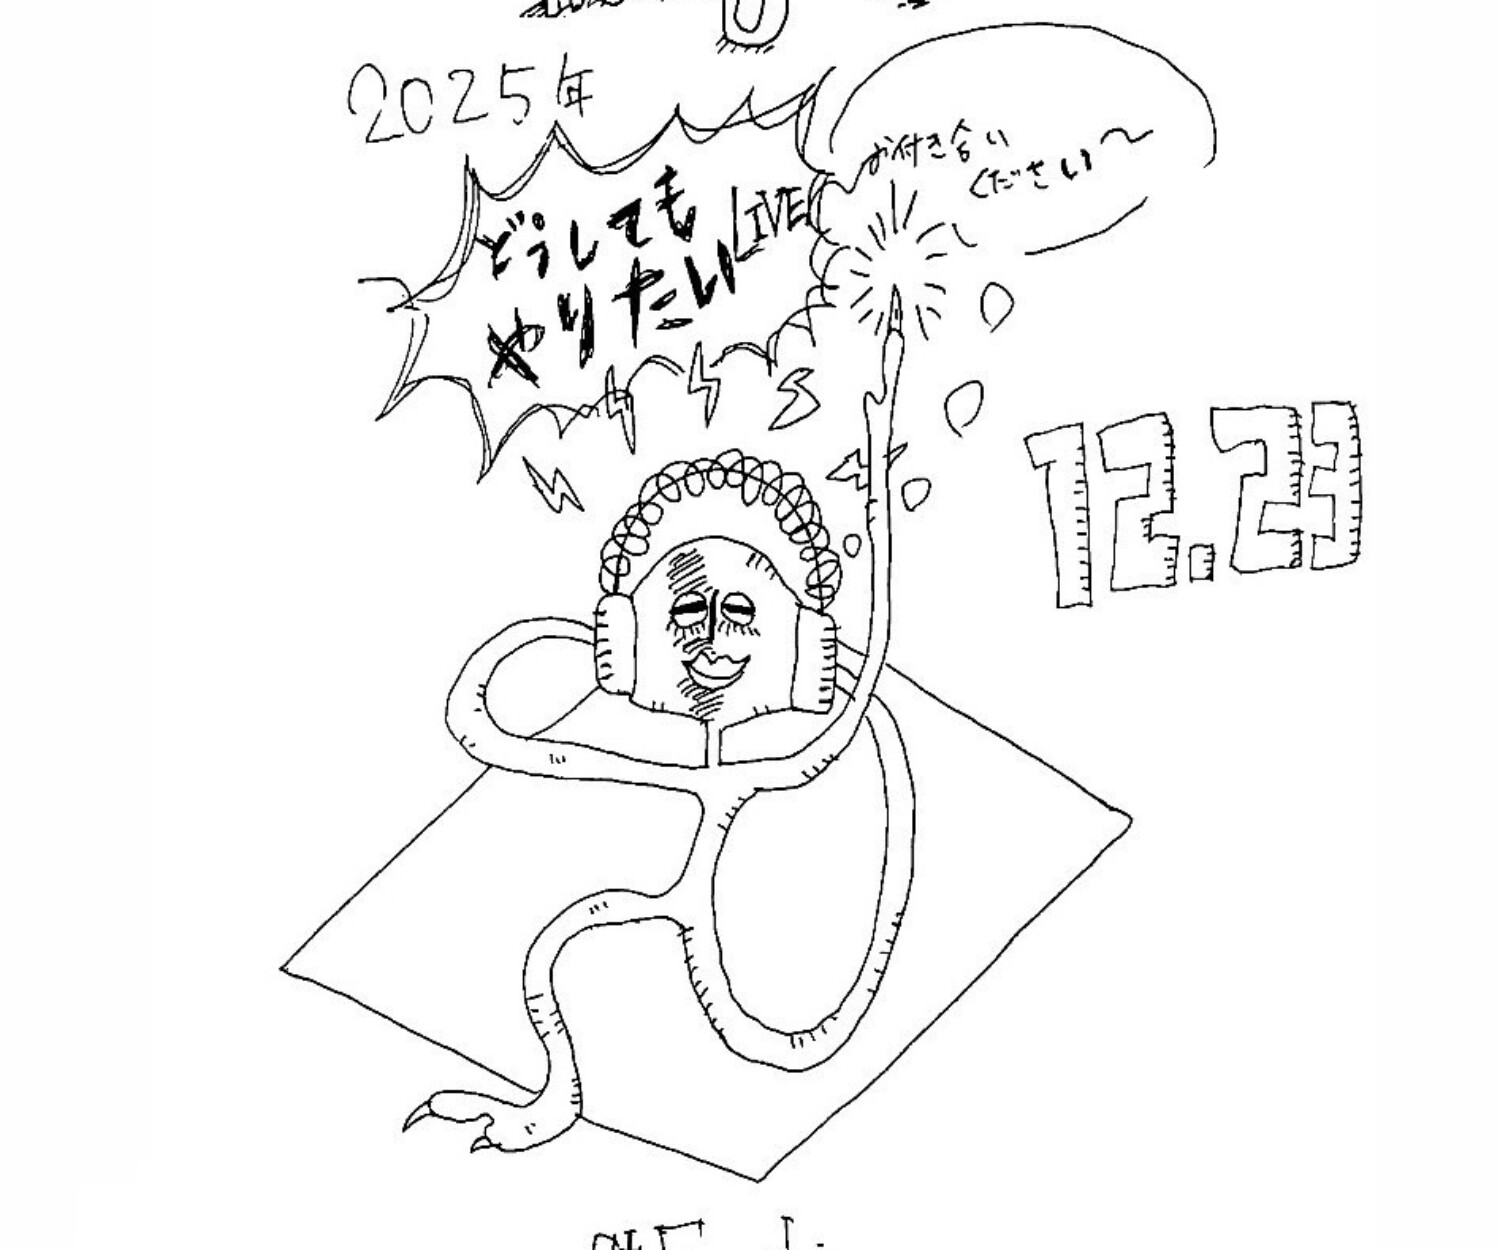 2025年
どうしても
やりたいLIVE
お付き合い
ください〜
12.23